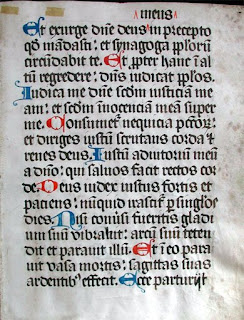 meus
Et exurge dn̄e deus in precepto
qd̄ mādasti: et synagoga pplōrū
circūdabit te. Et ꝓpter hanc ī al
tū regredere: dn̄s iudicat pplōs.
Iudica me dn̄e scdm̄ iusticiā me
am: et scdm̄ īnocenciā meā super
me. Consumet̄ nequicia pctōꝝ:
et diriges iustū scrutans corda et
renes deus. Iustū adiutoriū meū
a dn̄o: qui saluos facit rectos cor
de. Deus iudex iustus fortis et
paciens: nūquid irascit̄ ꝑ singlōs
dies. Nisi cōuersi fueritis gladi
um suū vibrabit: arcū suū teten
dit et parauit illū. Et in eo para
uit vasa mortis: sagittas suas
ardentibꝰ effecit. Ecce parturijt